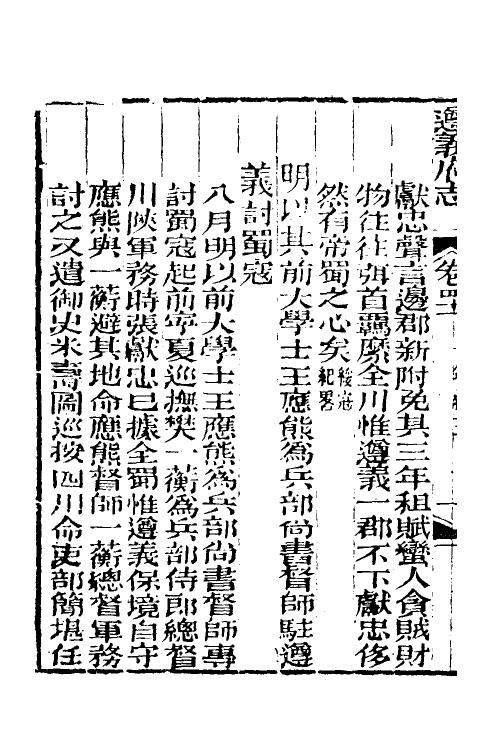 遵義府志
卷四
獻忠聲言邊郡新附免其三年租賦蠻人貪賊財
物往往弭首羈縻全川惟遵義一郡不下獻忠侈
然有帝蜀之心矣綏寇紀畧
明以其前大學士王應熊爲兵部尚書督師駐遵
義討蜀寇
八月明以前大學士王應熊爲兵部尚書督師專
討蜀寇起前寧夏巡撫樊一蘅爲兵部侍郎總督
川陝軍務時張獻忠已據全蜀惟遵義保境自守
應熊與一蘅避其地命應熊督師一蘅總督軍務
討之又遣御史米壽圖巡按四川命吏部簡堪任